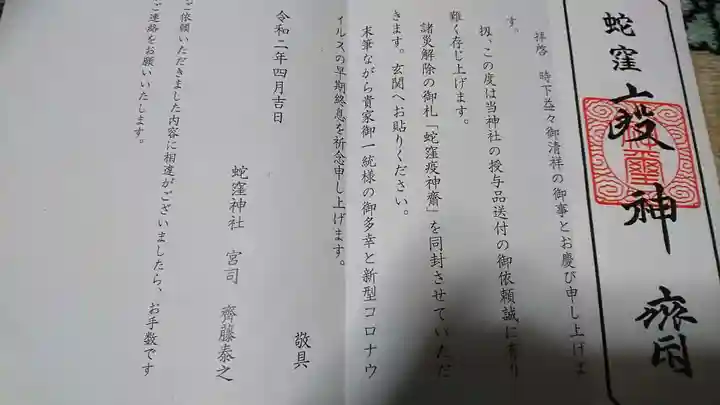 蛇窪疫神齋
拝啓 時下益々御清祥の御事とお慶び申し上げま
す。
扨、この度は当神社の授与品送付の御依頼誠に有り
難く存じ上げます。
諸災解除の御札「蛇窪疫神齋」を同封させていただ
きます。玄関へお貼りください。
末筆ながら貴家御一統様の御多幸と新型コロナウ
ィルスの早期終息を祈念申し上げます。
敬具
令和二年四月吉日
蛇窪神社 宮司 齊藤泰之
ご依頼いただきました内容に相違がございましたら、お手数です
ご連絡をお願いいたします。